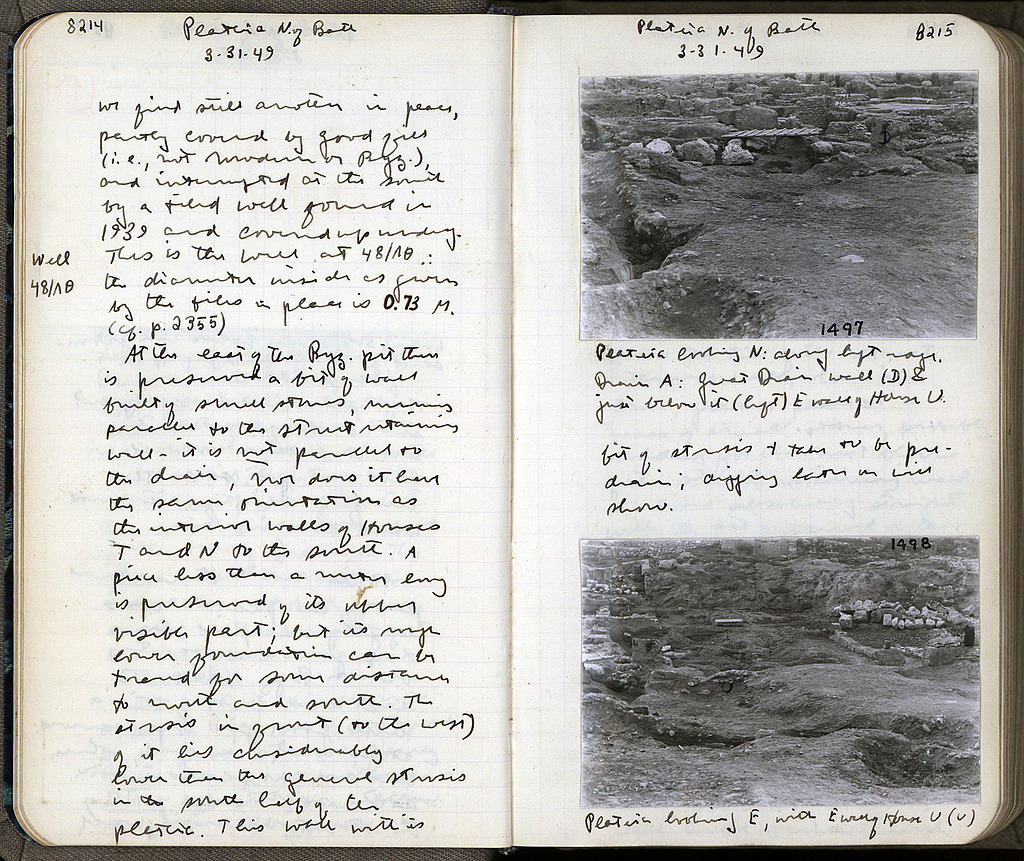 8214
Plateia N. of Bath
3-31-49
we find still another in place,
partly covered by good fill
(i.e., not modern or Byz.),
and interrupted at the south
by a tiled well found in
1939 and covered up
This is the well at 48/ΛΘ.:
Well
48/ΛΘ
the diameter inside as given
by the tiles in place is 0.73 M.
(cf. p. 2355)
At the east of the Byz. pit there
is preserved a bit of wall
built of small stones, running
parallel to the street retaining
wall - it is not parallel to
the drain, nor does it have
the same orientation as
the interior walls of Houses
T and N to the south. A
piece less than a meter long
is preserved of its upper
visible part; but its rough
lower foundation can be
traced for some distance
to north and south. The
stosis in front (to the west)
of it lies considerably
lower than the general stosis
in the south half of the
plateia. This wall with its
Plateia N. of Bath
3-31-49
8215
1497
Plateia looking N: along left edge,
Drain A: Great Drain wall (D) &
just below it (left) E wall of House U.
bit of stosis I take to be pre-
drain; digging later on will
show.
1498
Plateia looking E, with E wall of House U (U)